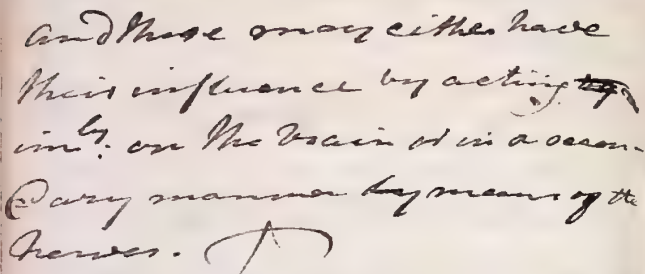 and these may either have
their influence by acting
imly. on the brain or in a secon-
dary manner by means of the
nerves.